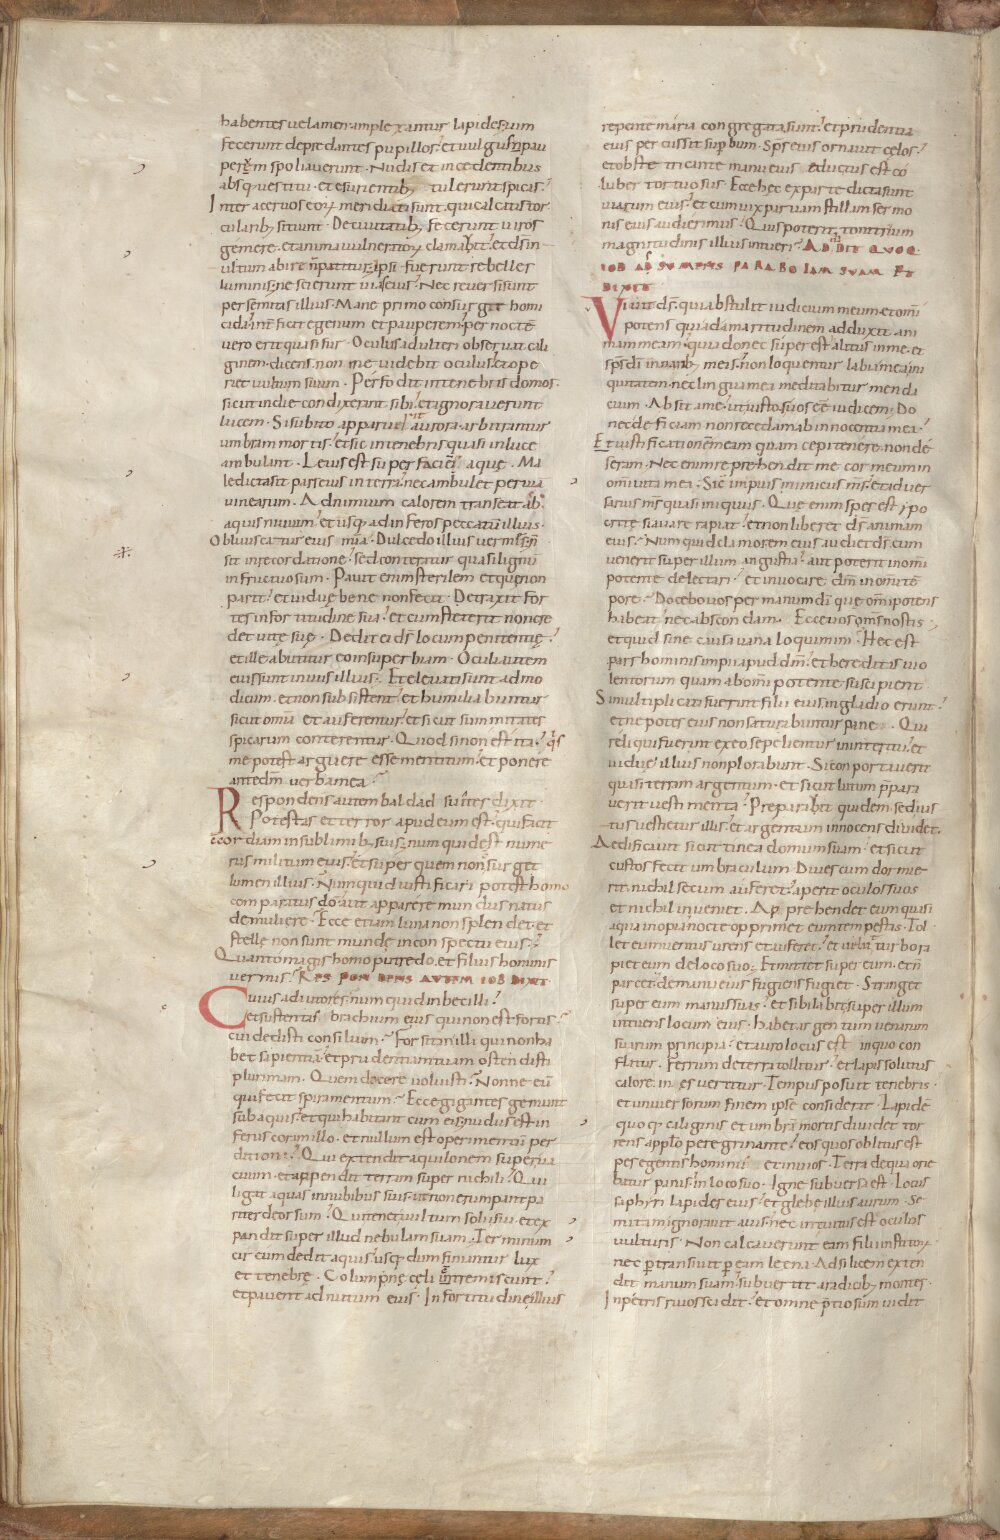 habentes velamen amplexantur lapides. vim
fecerunt depredantes pupillos. et vulgus pau
perem spoliaverunt. Nudis et incedentibus
absque vestitu. et esurientib; tulerunt spicas.
Inter acervos eorum meridiati sunt. qui calcatis tor
cularib; sitiunt. De civitatib; fecerunt viros
gemere. et anima vulneratorum clamabit. et ds in
ultum abire n patitur. ipsi fuerunt rebelles
lumini. nescierunt vias eius. Nec reversi sunt
per semitas illius. Mane primo consurgit homi
cida. interficit egenum et pauperem. per nocte
vero erit quasi fur. Oculus adulteri observat cali
ginem. dicens. non me videbit oculus. et ope
riet vultum suum. Perfodit in tenebris domos.
sicut in die condixerant sibi. et ignoraverunt
lucem. Si subito apparuerit aurora. arbitrantur
umbram mortis. et sic in tenebris quasi in luce
ambulant. Levis est super faciem aque. Ma
ledicta sit pars eius in terra. nec ambulet per via
vinearum. Ad nimium calorem transeat ab
aquis nivium. et usq; ad inferos peccatum illius.
Obliviscatur eius mia. Dulcedo illius vermis. n
sit in recordatione. sed conteratur quasi lignum
infructuosum. Pavit enim sterilem et que non
parit. et vidue bene non fecit. Detraxit for
tes in fortitudine sua. et cum steterit non cre
det vite sue. Dedit ei ds locum penitentie.
et ille abutitur eo in superbiam. Oculi autem
eius sunt in viis illius. Elevati sunt ad mo
dicum. et non subsistent. et humiliabuntur
sicut omia et auferentur. et sicut summitates
spicarum conterentur. Quod si non est ita. qis
me potest arguere esse mentitum. et ponere
ante dm verba mea.
Respondens autem baldad suites dixit.
Potestas et terror apud eum est. qui facit
concordiam in sublimib; suis. numquid est nume
rus militum eius. et super quem non surget
lumen illius. Numquid iustificari potest homo
comparatus do. aut apparere mundus natus
de muliere. Ecce etiam luna non splendet. et
stelle non sunt munde in conspectu eius.
Quanto magis homo putredo. et filius hominis
vermis. RESPONDENS AUTEM IOB DIXIT
Cuius adiutor es. numquid imbecilli.
et sustentas brachium eius qui non est fortis.
cui dedisti consilium. Forsitan illi qui non ha
bet sapientia. et prudentiam tuam ostendisti
plurimam. Quem docere voluisti. Nonne eu
qui fecit spiramentum. Ecce gigantes gemunt
sub aquis. et qui habitant cum eis. nudus est in
fernus coram illo. et nullum est operimentum per
ditioni. Qui extendit aquilonem super va
cuum. et appendit terram super nichili. Qui
ligat aquas in nubibus suis. ut non erumpant pa
riter deorsum. Qui tenet vultum solii sui. et ex
pandit super illud nebulam suam. Terminum
circumdedit aquis. usq; dum finiuntur lux
et tenebre. Columpne celi contremiscunt.
et pavent ad nutum eius. In fortitudine illius
repente maria congregata sunt. et prudentia
eius percussit superbum. Sps eius ornavit celos.
et obstetricante manu eius eductus est co
luber tortuosus. Ecce hec ex parte dicta sunt
viarum eius. et cum vix parvam stillam sermo
nis eius audierimus. Quis poterit tonitruum
magnitudinis illius intueri. ADDIT QUOQ
IOB ADSUMENS PARABOLAM SUAM ET
DIXIT
Vivit ds. qui abstulit iudicium meum. et omi
potens qui ad amaritudinem adduxit ani
mam meam. quia donec superest alitus in me. et
sps di in narib; meis. non loquentur labia mea ini
quitatem. nec lingua mea meditabitur menda
cium. Absit a me. ut iustos vos esse iudicem. Do
nec deficiam non recedam ab innocentia mea.
Et iustificationem meam quam cepi tenere. non de
seram. Nec enim reprehendit me cor meum in
omi vita mea. Sit impius inimicus ms. et adver
sarius ms quasi iniquus. Que enim spes est ypo
crite si avare rapiat. et non liberet ds animam
eius. Numquid clamorem eius audiet ds. cum
venerit super illum angustia. aut poterit in omi
potente delectari. et invocare dm in omi te
pore. Docebo vos per manum di que omipotens
habeat. nec abscondam. Ecce vos oms nostis.
et quid sine causa vana loquimini. Hec est
pars hominis impii apud dm. et hereditas vio
lentorum quam ab omipotente suscipient.
Si multiplicati fuerint filii eius in gladio erunt.
et nepotes eius non saturabuntur pane. Qui
reliqui fuerint ex eo sepelientur in interitu. et
vidue illius non plorabunt. Si comportaverit
quasi terram argentum. et sicut lutum prepara
verit vestimenta. Preparabit quidem. sed ius
tus vestietur illis. et argentum innocens dividet.
Aedificavit sicut tinea domum suam. et sicut
custos fecit umbraculum. Dives cum dormie
rit. nichil secum auferet. aperit oculos suos
et nichil inveniet. Apprehendet eum quasi
aqua inopia. nocte opprimet eum tempestas. Tol
let eum ventus urens et auferet. et velut turbo ra
piet eum de loco suo. Et mittet super eum. et n
parcet. de manu eius fugiens fugiet. Stringet
super eum manus suas. et sibilabit super illum
intuens locum eius. habet argentum venarum
suarum principia. et auro locus est in quo con
flatur. Ferrum de terra tollitur. et lapis solutus
calore. in es vertitur. Tempus posuit tenebris.
et universorum finem ipse considerat. Lapide
quoq; caliginis et umbra mortis dividet tor
rens a pplo peregrinante. eos quos oblitus est
pes egentis hominis et invios. Terra de qua orie
batur panis. in loco suo. Igne subversa est. Locus
saphyri lapides eius. et glebe illius aurum. Se
mitam ignoravit avis. nec intuitus est oculos
vulturis. Non calcaverunt eam filii institorum
nec ptransivit p eam leena. Ad silicem exten
dit manum suam. subvertit a radicib; montes.
In petris rivos scidit. et omne ptiosum vidit